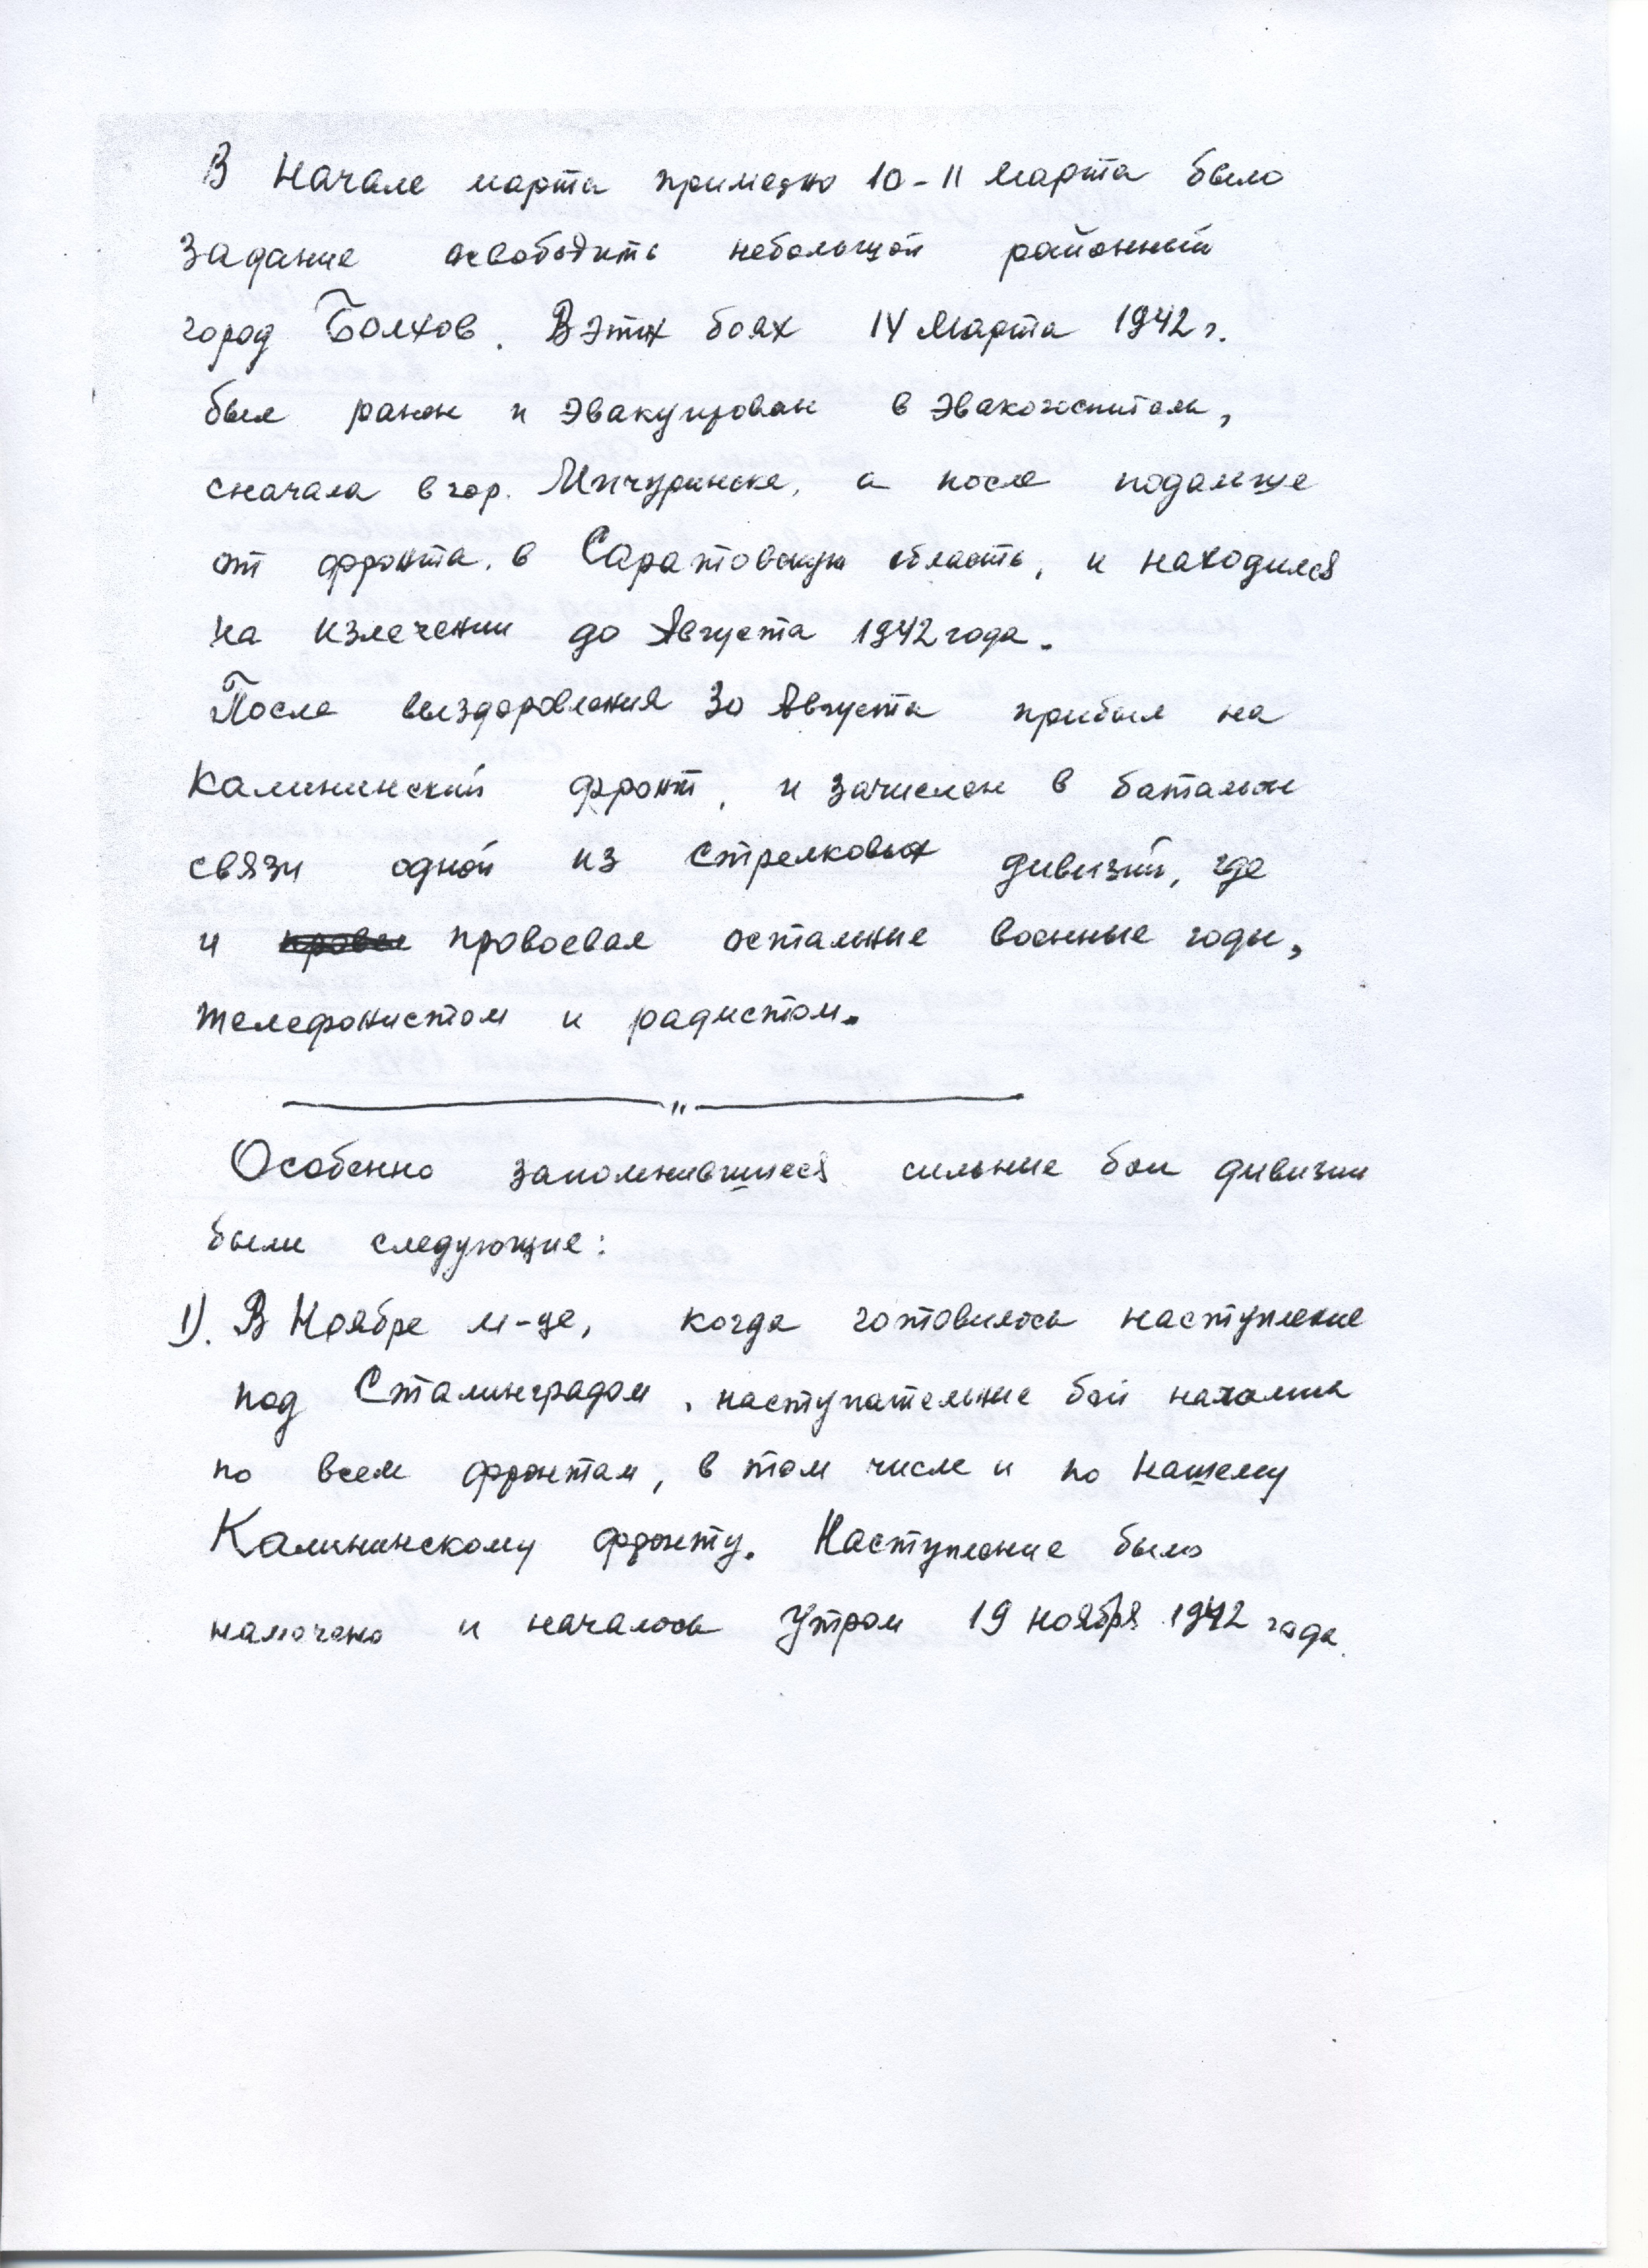 В Начале марта примерно 10-11 Марта было
Задание освободить небольшой районный
город Болхов. В этих боях 14 Марта 1942 г.
был ранен и эвакуирован в эвакогоспиталь,
сначала в гор. Мичуринске, а после подальше
от фронта, в Саратовскую область, и находился
на излечении до Августа 1942 года.
После выздоровления 30 Августа прибыл на
Калининский фронт, и зачислен в батальон
связи одной из стрелковых дивизий, где
и провоевал остальные военные годы,
телефонистом и радистом.
"
Особенно запомнившиеся сильные бои дивизии
были следующие:
1). В Ноябре м-це, когда готовилось наступление
под Сталинградом, наступательные бои начались
по всем фронтам, в том числе и по нашему
Калининскому фронту. Наступление было
намечено и началось Утром 19 ноября 1942 года.